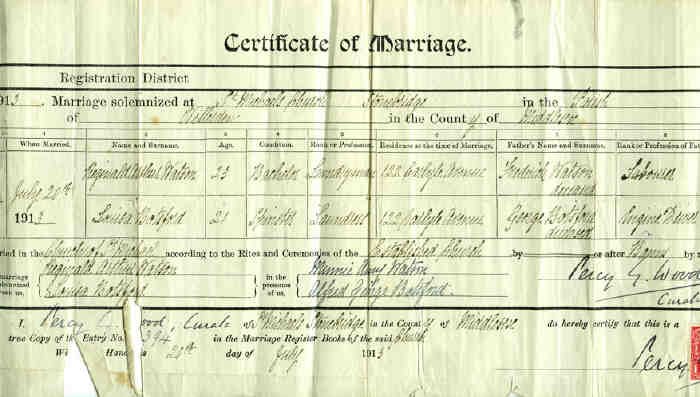 Certificate of Marriage.
Registration District
1913. Marriage solemnized at St Michaels Church Stonebridge in the Parish
of Willesden in the County of Middlesex
When Married. Name and Surname. Age. Condition. Rank or Profession. Residence at the time of Marriage. Father's Name and Surname. Rank or Profession of
July 20th Reginald Arthur Watson 23 Bachelor Laundryman 122 Carlyle Avenue Fredrick Watson deceased Labourer
1913 Louisa Botsford 21 Spinster Laundress 122 Carlyle Avenue George Botsford deceased Engine Driver
ried in the Church of St Michael according to the Rites and Ceremonies of the Established Church by or after Banns by
marriage solemnized between us, Reginald Arthur Watson in the presence of us, Minnie Watson Percy G. Wood
Louisa Botsford Alfred George Botsford. Curate
I, Percy G. Wood, Curate of St Michaels Stonebridge in the County of Middlesex do hereby certify that this is a
true Copy of the Entry No. 394 in the Marriage Register Books of the said Church
Hand 20th day of July 1913 Percy